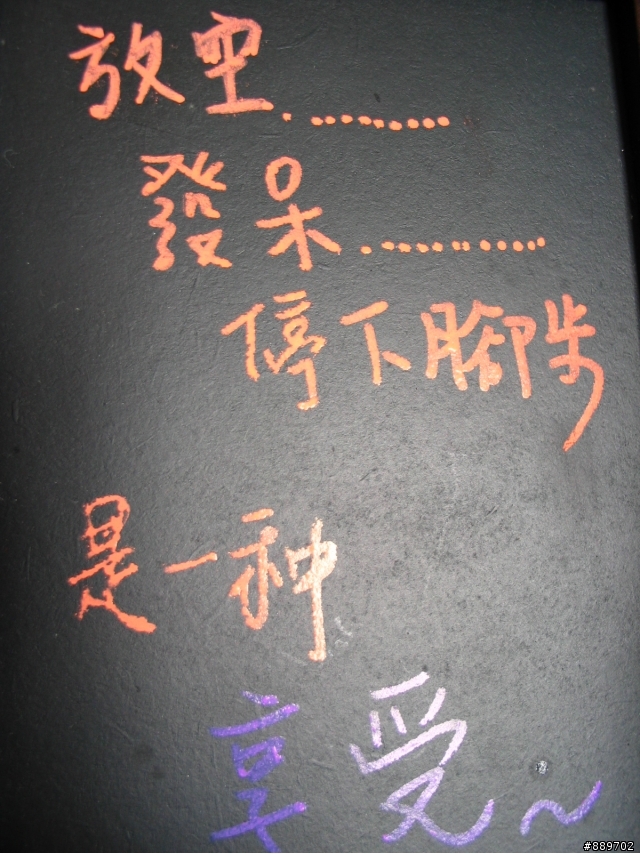 放空.........
發呆............
停下腳步
是一种
享受~
#889702